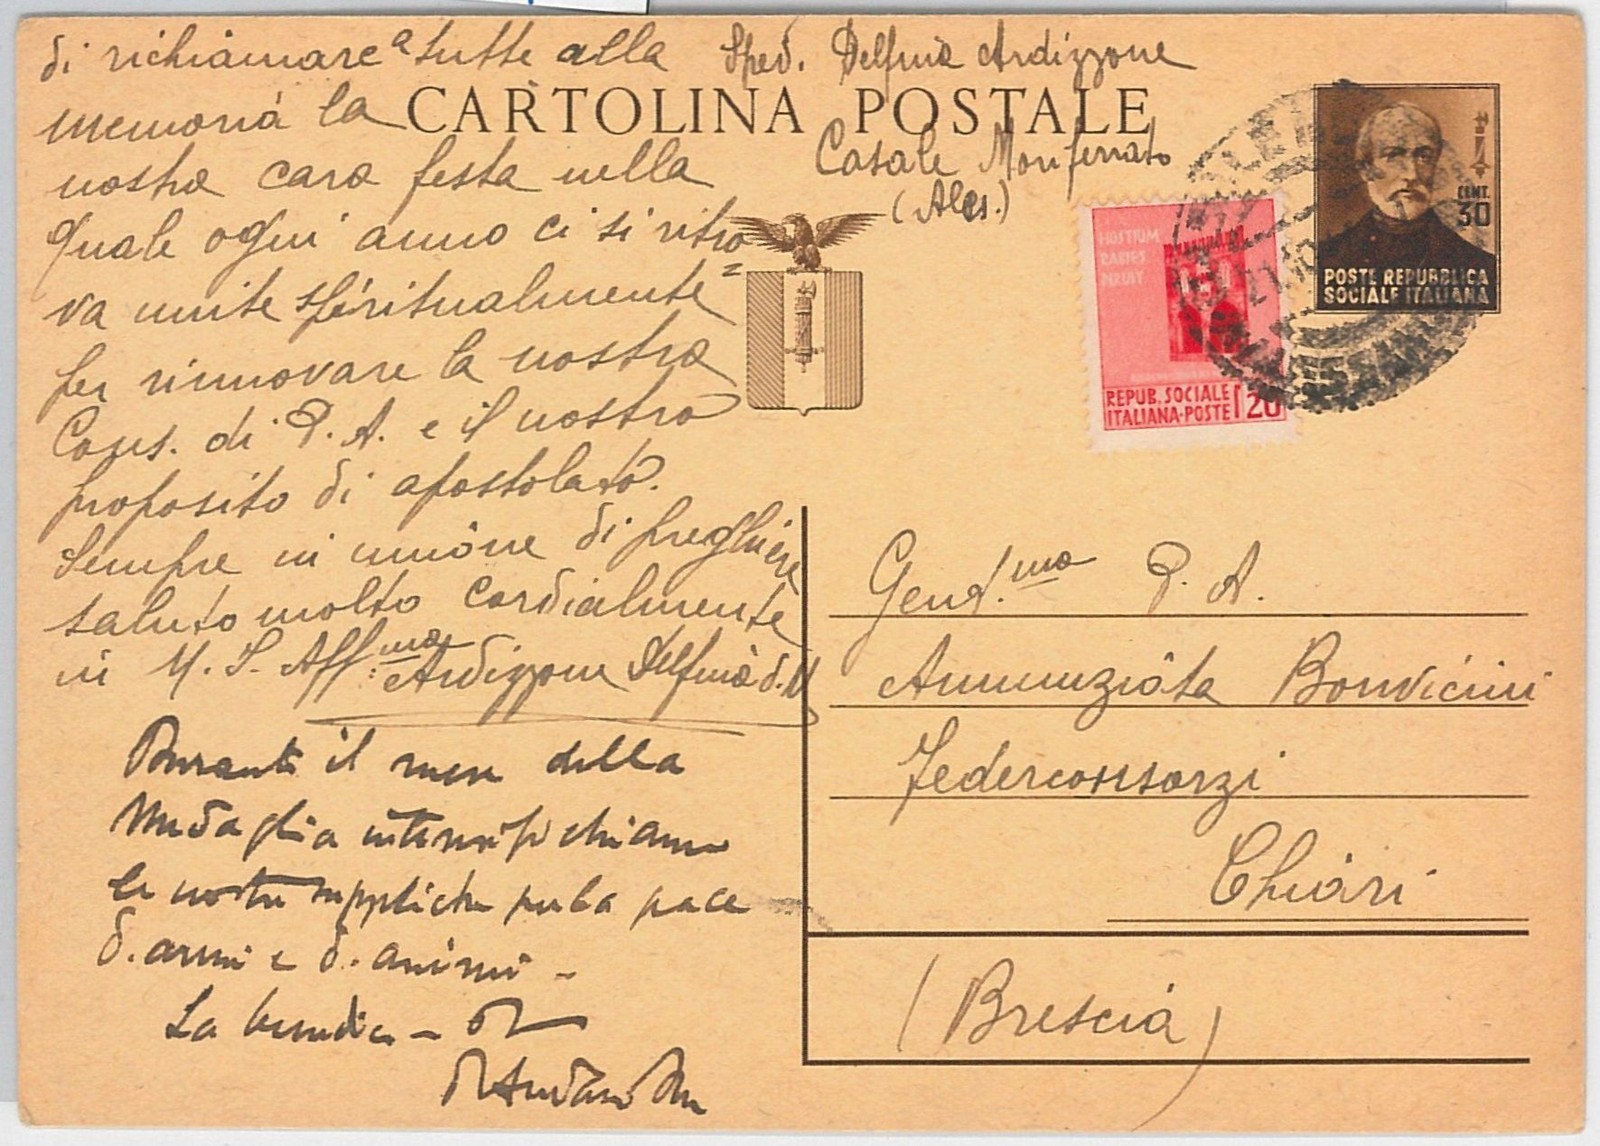 di richiamare a tutte alla
memoria la
nostra cara festa nella
quale ogni anno ci si ritro=
va unite spiritualmente
per rinnovare la nostra
Cons. di P. A. e il nostro
proposito di apostolato.
Sempre in unione di preghiere
saluto molto cordialmente
in M. I. Aff.ma Ardizzone Delfina d. M
Durante il mese della
Medaglia intensifichiamo
le nostre suppliche per la pace
d. armi e d. animi -
La benedica -
Sped. Delfina Ardizzone
CARTOLINA POSTALE
Casale Monferrato
(Ales.)
HOSTIUM
RABIES
DIRUIT
REPUB. SOCIALE
ITALIANA-POSTE 20
CENT.
30
POSTE REPUBBLICA
SOCIALE ITALIANA
Gent.ma P. A.
Annunziata Bonvicini
Federconsorzi
Chiari
(Brescia)